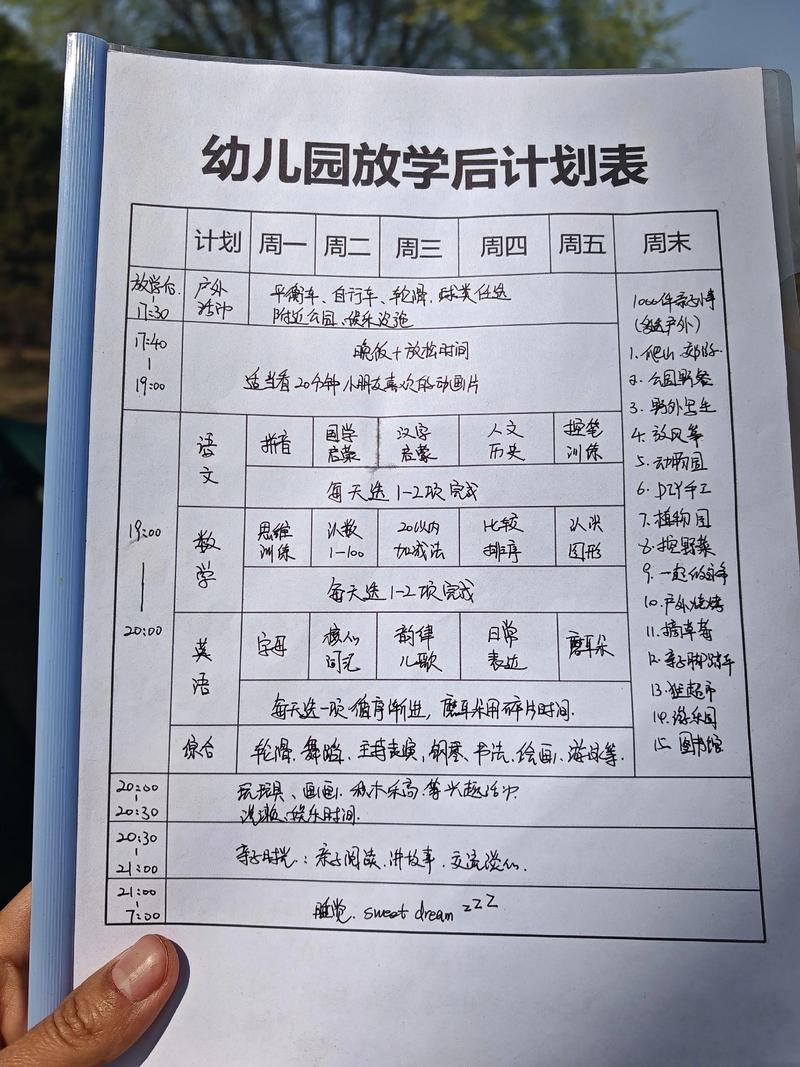 幼儿园放学后计划表
计划 周一 周二 周三 周四 周五 周末
放学后 - 17:30
户外活动
平衡车、自行车、轮滑、球类任选
附近公园、娱乐设施
17:40 - 19:00
晚饭+放松时间
适当看20分钟小朋友喜欢的动画片
19:00 — 20:00
语文
拼音 国学启蒙 汉字启蒙 人文历史 控笔训练
每天选1-2项完成
数学
思维训练 认数1-100 20以内加减法 比较排序 认识图形
每天选1-2项完成
英语
字母 核心词汇 韵律儿歌 日常表达 磨耳朵
每天选一项循序渐进,磨耳朵用碎片时间.
综合
轮滑、舞蹈、主持表演,钢琴、书法、绘画、游泳等.
20:00 - 20:30
玩玩具、画画、积木乐高.等兴趣活动
洗漱、娱乐时间.
20:30 - 21:00
亲子时光:亲子阅读、讲故事、交流谈心.
21:00 - 7:00
睡觉. sweet dream zZZ
1000件亲子小事
户外)
1、爬山 郊游
2、公园野餐
3、野外写生
4、放风筝
5、动物园
6、DIY手工
7、植物园
8、挖野菜
9、一起
10、户外烧烤
11、摘草莓
12、亲子脚踏车
13、逛超市
14、游乐园
15、图书馆